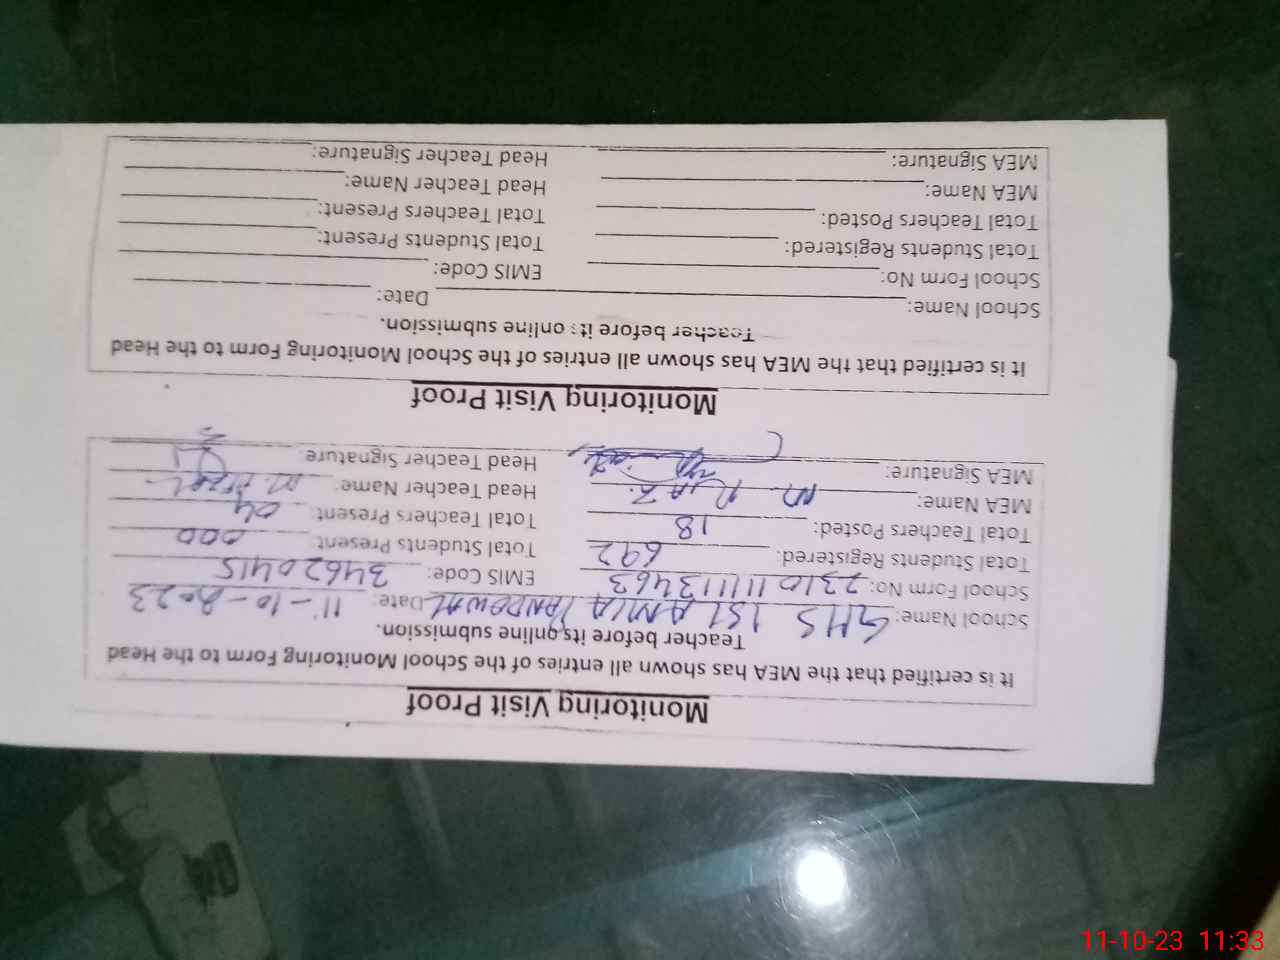 Monitoring Visit Proof
It is certified that the MEA has shown all entries of the School Monitoring Form to the Head
Teacher before its online submission.
School Name: GHS ISLAMIA PANDOWAL Date: 11-10-2023
School Form No: 23101111113463 EMIS Code: 34620415
Total Students Registered: 692 Total Students Present: 000
Total Teachers Posted: 18 Total Teachers Present: 04
MEA Name: M. RIAZ Head Teacher Name: M. Afzal
MEA Signature: Head Teacher Signature:
Monitoring Visit Proof
It is certified that the MEA has shown all entries of the School Monitoring Form to the Head
Teacher before its online submission.
School Name: Date:
School Form No: EMIS Code:
Total Students Registered: Total Students Present:
Total Teachers Posted: Total Teachers Present:
MEA Name: Head Teacher Name:
MEA Signature: Head Teacher Signature:
11-10-23 11:33